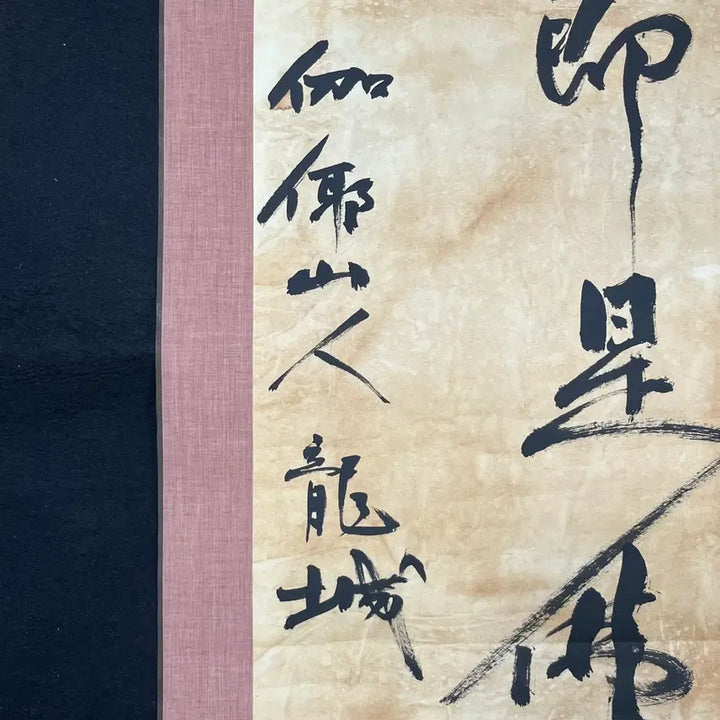 即是佛
伽倻山人 龍城